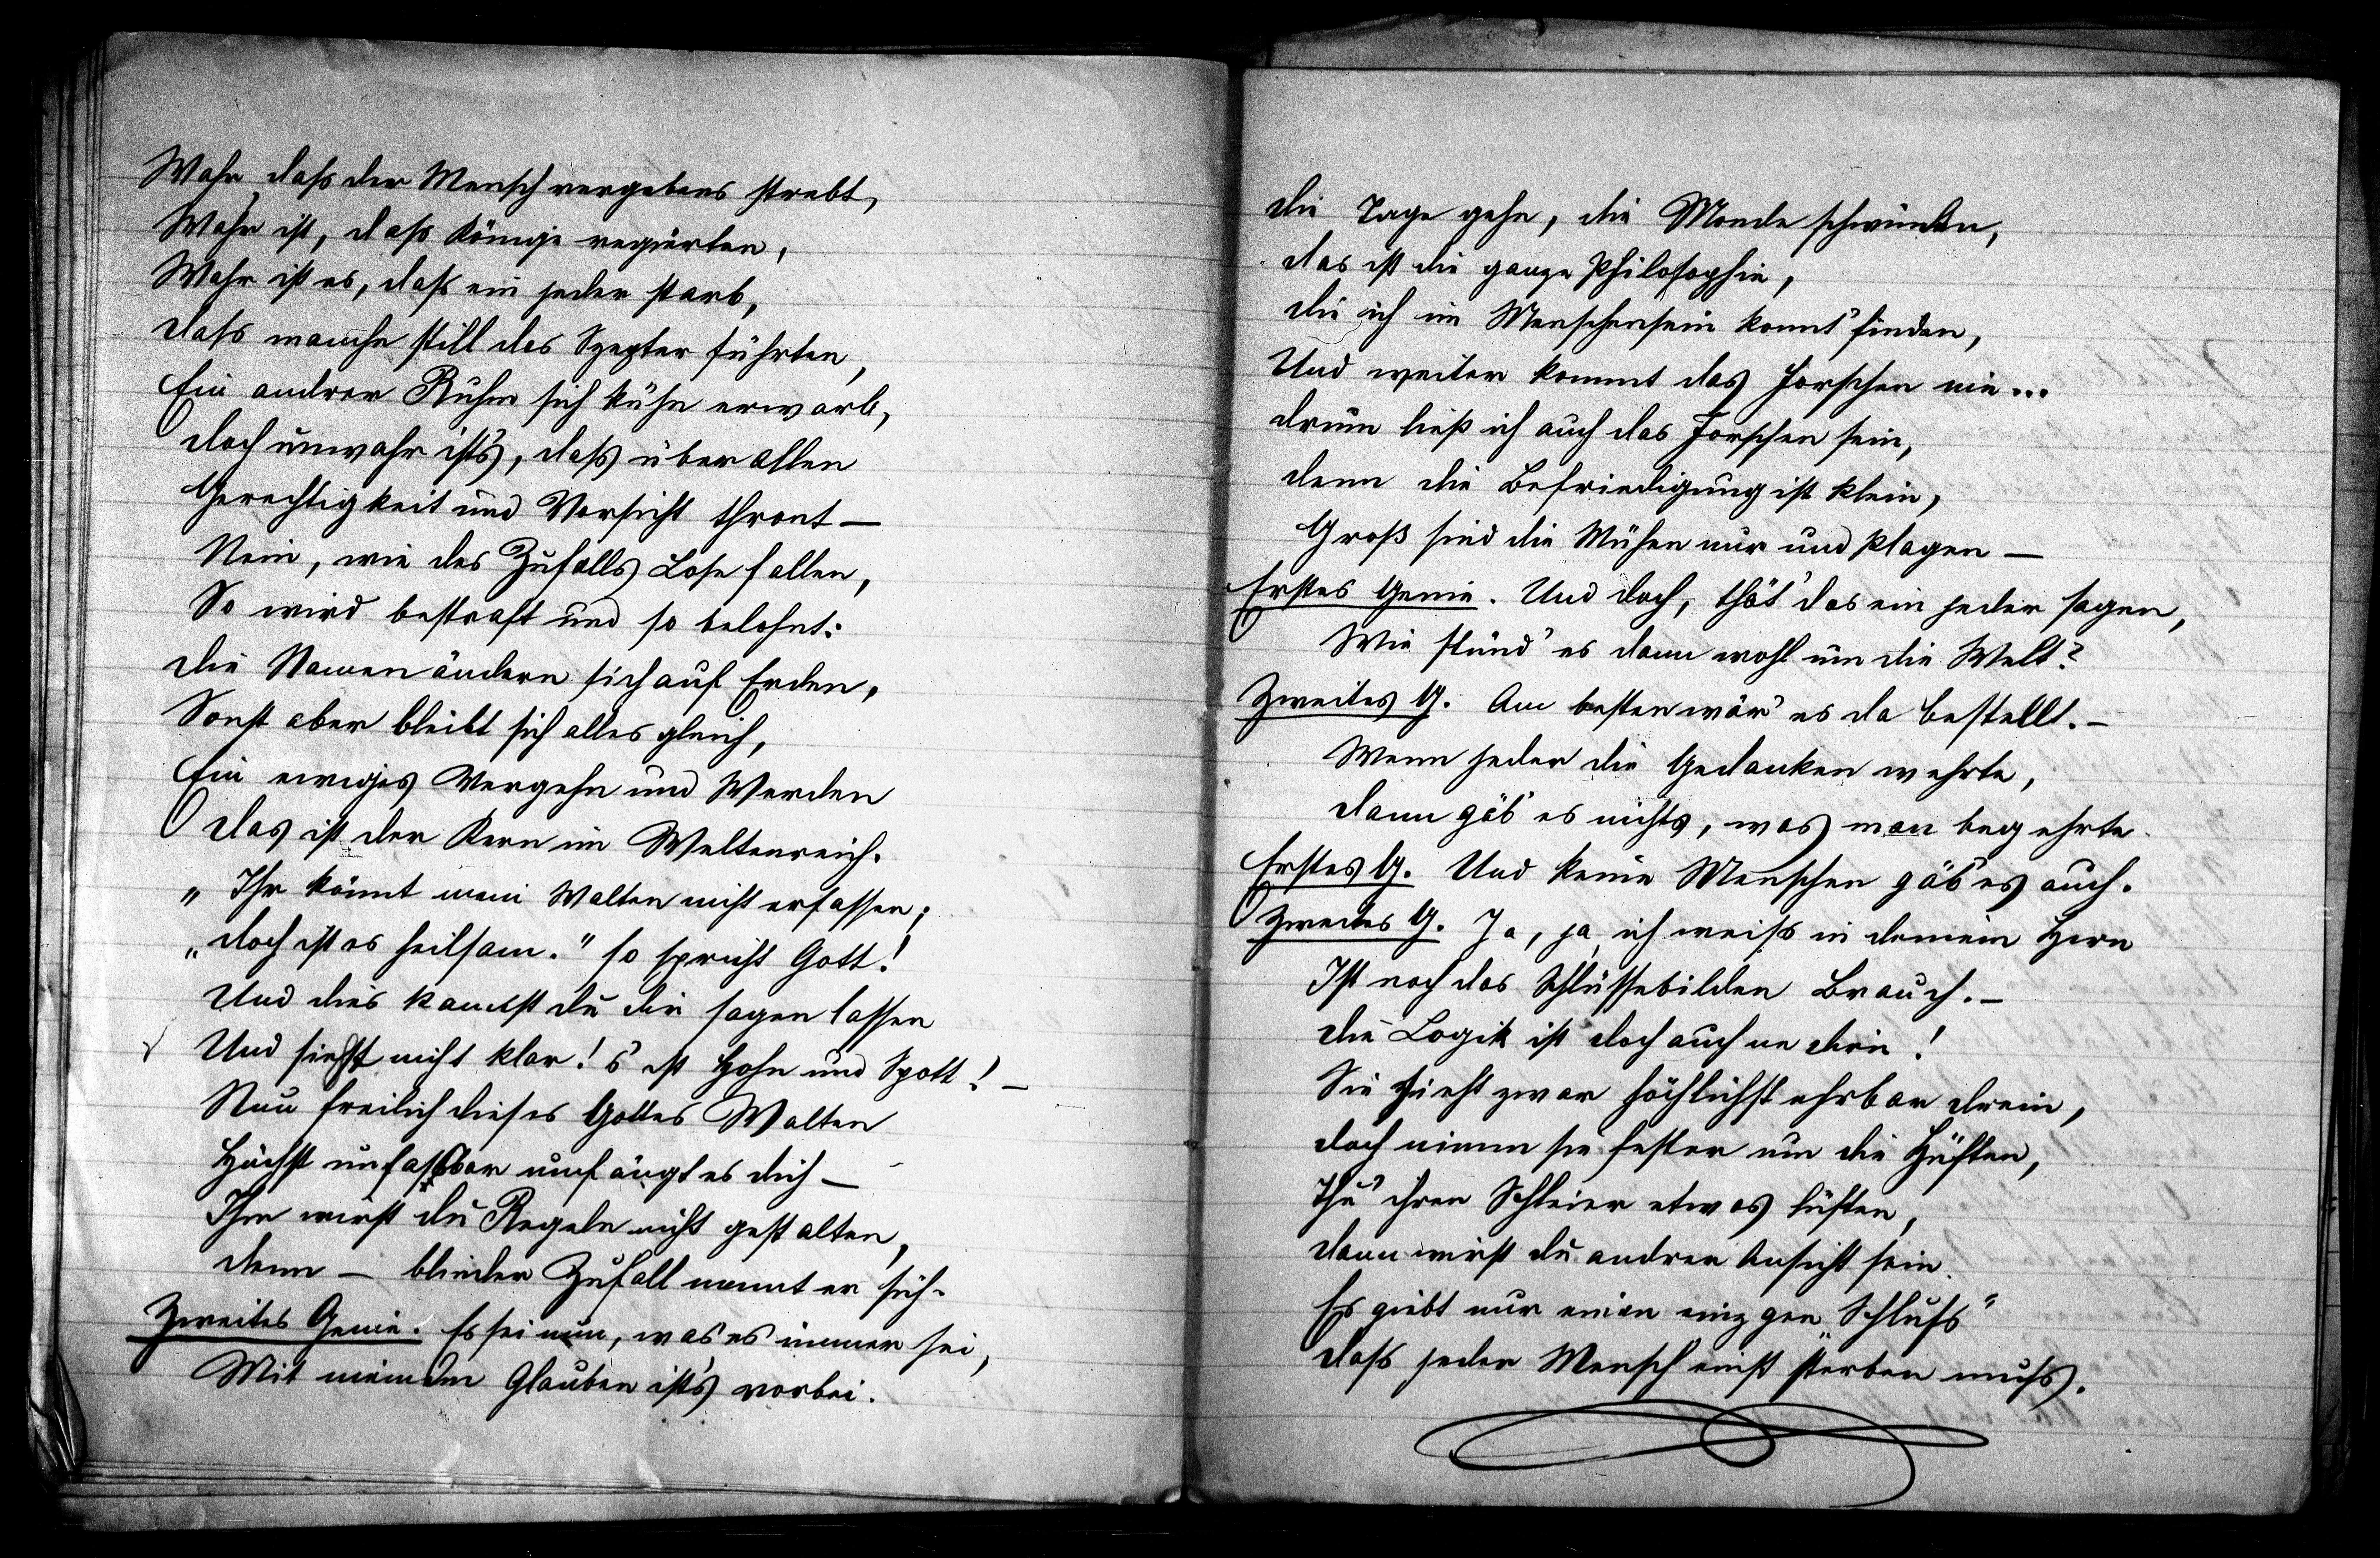 Wahr, daß der Mensch vergebens strebt,
Wahr ist, daß Könige regierten,
Wahr ist es, daß ein jeder starb,
daß manche still das Szepter führten,
Ein andrer Ruhm sich kühn erwarb,
doch unwahr ist's, daß über allen
Gerechtigkeit und Vorsicht thront —
Nein, wie des Zufalls Lose fallen,
So wird bestraft und so belohnt:
die Namen ändern sich auf Erden,
Sonst aber bleibt sich alles gleich,
Ein ewiges Vergehn und Werden
das ist der Kern im Weltenreich.
„Ihr könnt mein Walten nicht erfassen;
„doch ist es heilsam." so spricht Gott!
Und dies kannst du dir sagen lassen
Und siehst nicht klar! 's ist Hohn und Spott! —
Nun freilich dieses Gottes Walten
Höchst unfaßbar umfängt es dich —
Ihm wirst du Regeln nicht gestalten,
denn — blinder Zufall nennt er sich.
Zweites Genie. Es sei nun, was es immer sei,
Mit meinem Glauben ist's vorbei.
die Tage gehn, die Monde schwinden,
das ist die ganze Philosophie,
die ich im Menschensein konnt' finden,
Und weiter kommt das Forschen nie...
drum ließ ich auch das Forschen sein,
denn die Befriedigung ist klein,
Groß sind die Mühen nur und Plagen —
Erstes Genie. Und doch, thät' das ein jeder sagen,
Wie stünd' es dann wohl um die Welt?
Zweites G. Am besten wär' es da bestellt. —
Wenn jeder die Gedanken wehrte,
dann gäb' es nichts, was man begehrte.
Erstes G. Und keine Menschen gäb' es auch.
Zweites G. Ja, ja, ich weiß in deinem Hirn
Ist noch das Schlüssebilden Brauch. —
die Logik ist doch auch ne dirn!
Sie zieht zwar höchlichst ehrbar drein,
doch nimm sie fester um die Hüften,
Thu' ihren Schleier etwas lüften,
dann wirst du andrer Ansicht sein.
Es giebt nur einen einzgen „Schluß"
daß jeder Mensch einst sterben muß.